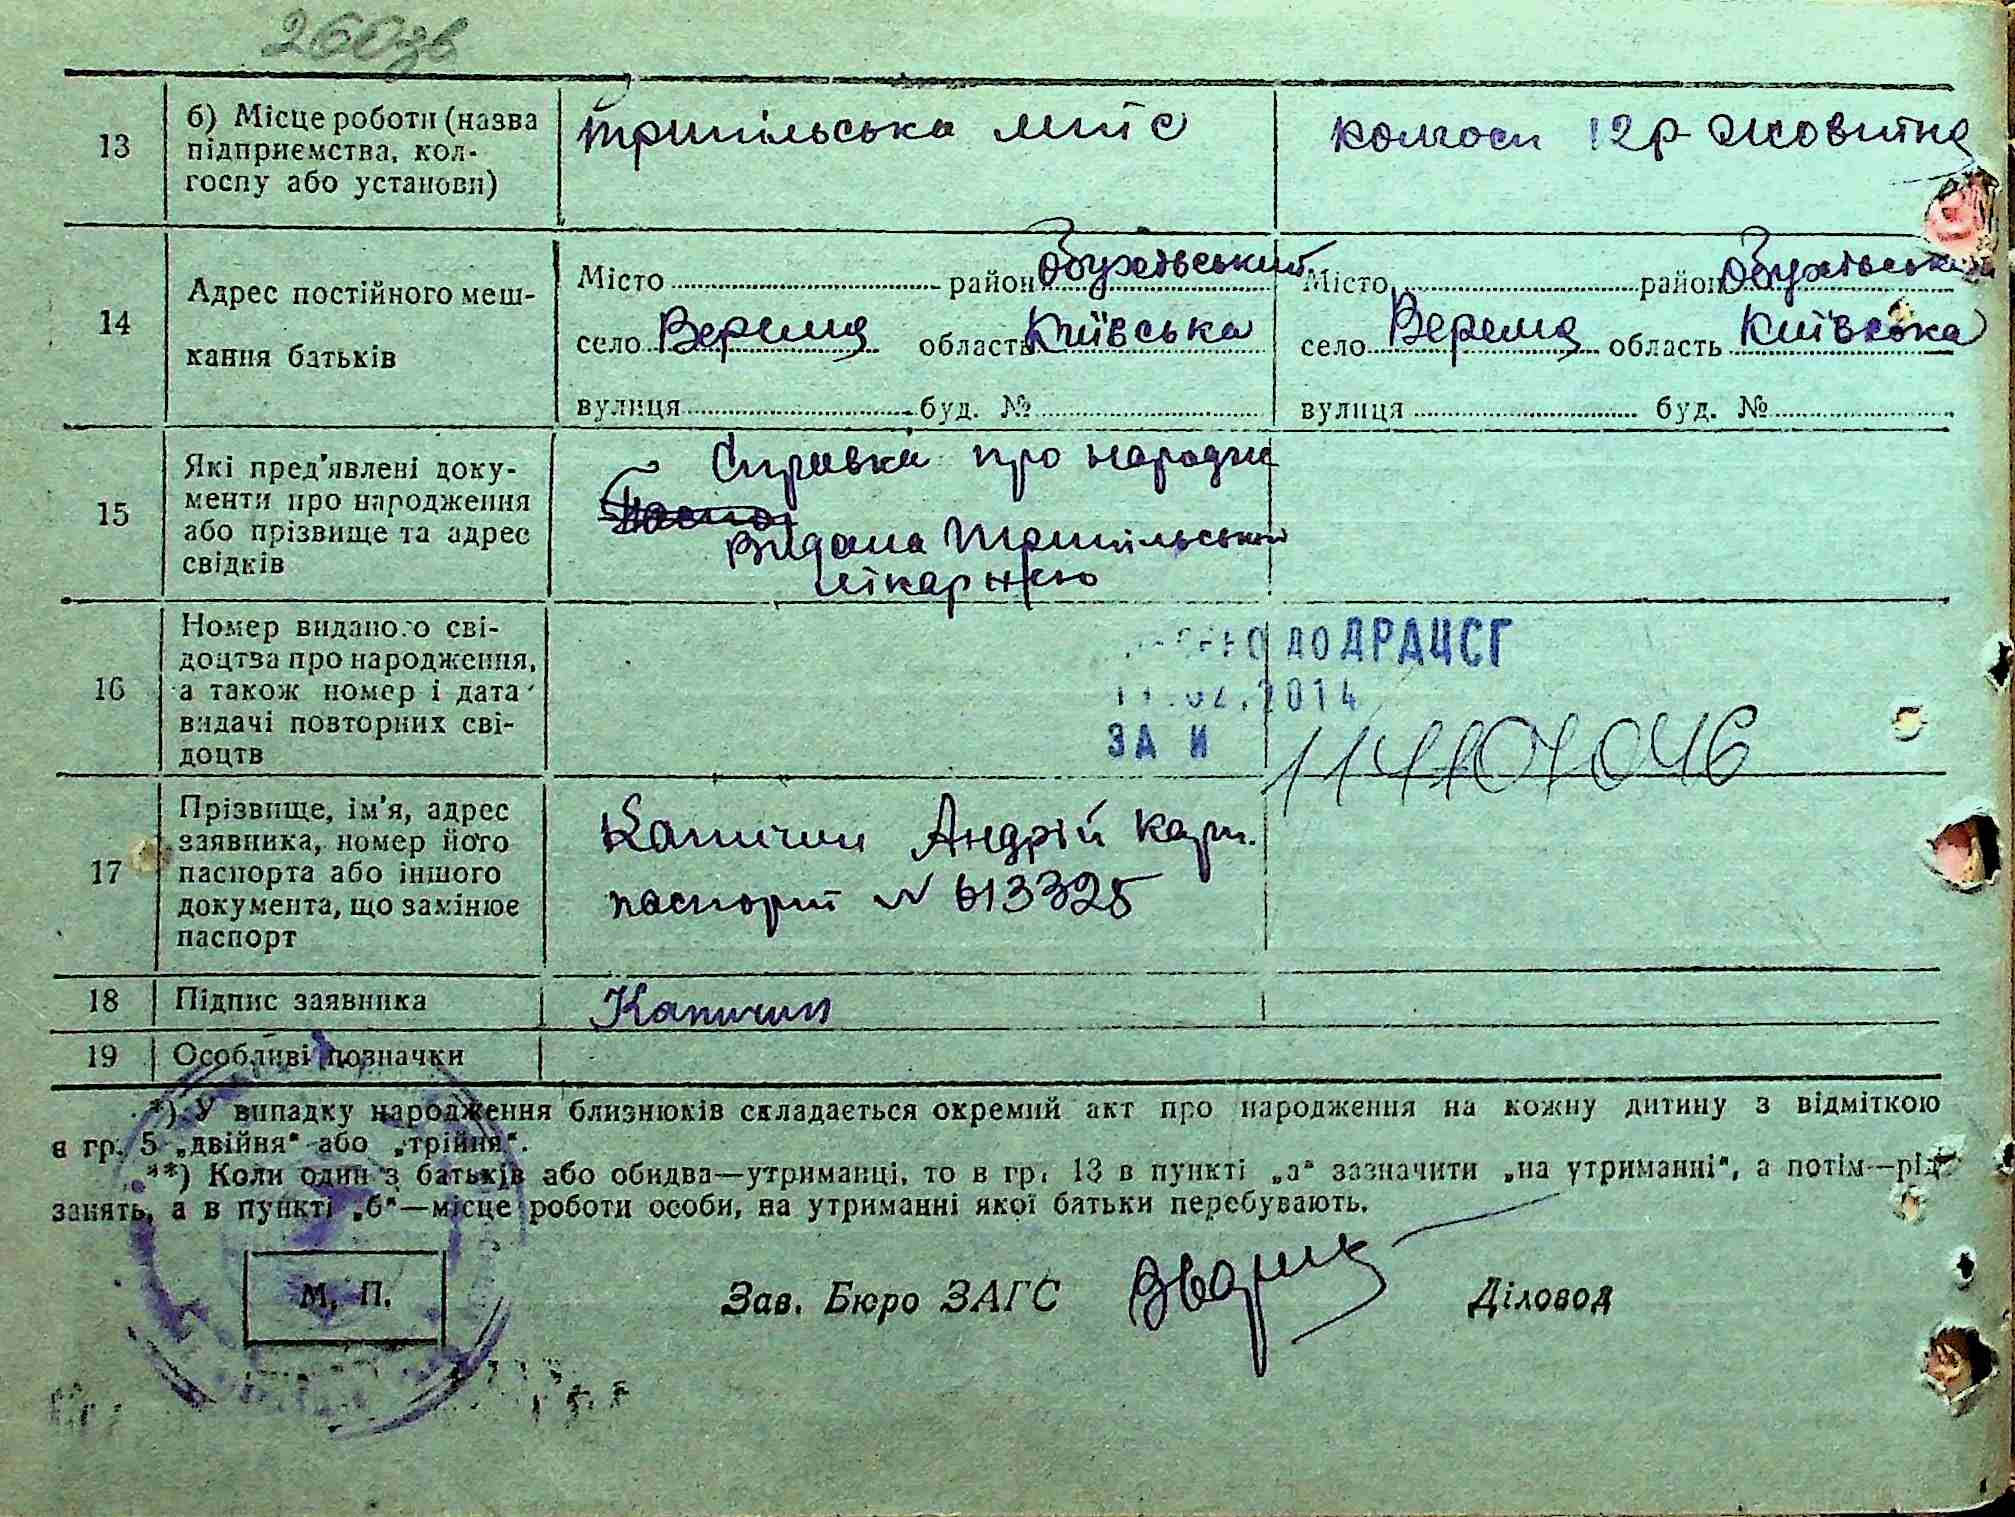 260зв
13
б) Місце роботи (назва
підприємства, кол-
госпу або установи)
Трипільська МТС
колгосп 12 р Жовтня
14
Адрес постійного меш-
кання батьків
Місто район Обухівський
село Веремя область Київська
вулиця буд. №
Місто район Обухівський
село Веремя область Київська
вулиця буд. №
15
Які пред'явлені доку-
менти про народження
або прізвище та адрес
свідків
Справка про народж
Видана Трипільською
лікарнею
16
Номер виданого сві-
доцтва про народження,
а також номер і дата
видачі повторних сві-
доцтв
ДО ДРАЦСГ
.02.2014
ЗА №
17
Прізвище, ім'я, адрес
заявника, номер його
паспорта або іншого
документа, що замінює
паспорт
Андрій Карп.
паспорт № 613325
18
Підпис заявника
19
Особливі позначки
*) У випадку народження близнюків складається окремий акт про народження на кожну дитину з відміткою
в гр. 5 „двійня“ або „трійня“.
**) Коли один з батьків або обидва—утриманці, то в гр. 13 в пункті „а“ зазначити „на утриманні“, а потім—рід
занять, а в пункті „б“—місце роботи особи, на утриманні якої батьки перебувають.
М. П.
Зав. Бюро ЗАГС
Діловод